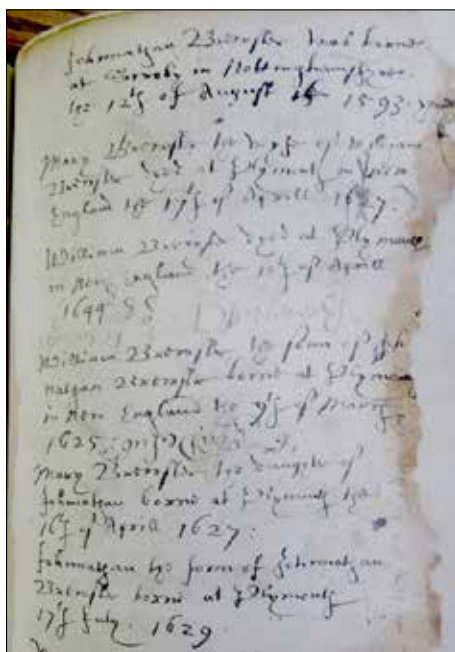 Johnnathan Brewster was borne
at Scrooby in Nottinghamshyre
the 12th of August 1593
Mary Brewster the wyfe of William
Brewster dyed at Plymouth in New
England the 17th of Aprill 1627.
William Brewster dyed at Plymouth
in New England the 10th of Aprill
1644
William Brewster the sonn of Joh
nathan Brewster borne at Plymouth
in New England the 9th of March
1625
Mary Brewster the daughter of
Johnnathan borne at Plymouth the
16th of Aprill 1627:
Johnnathan the sonn of Johnnathan
Brewster borne at Plymouth
17th July. 1629